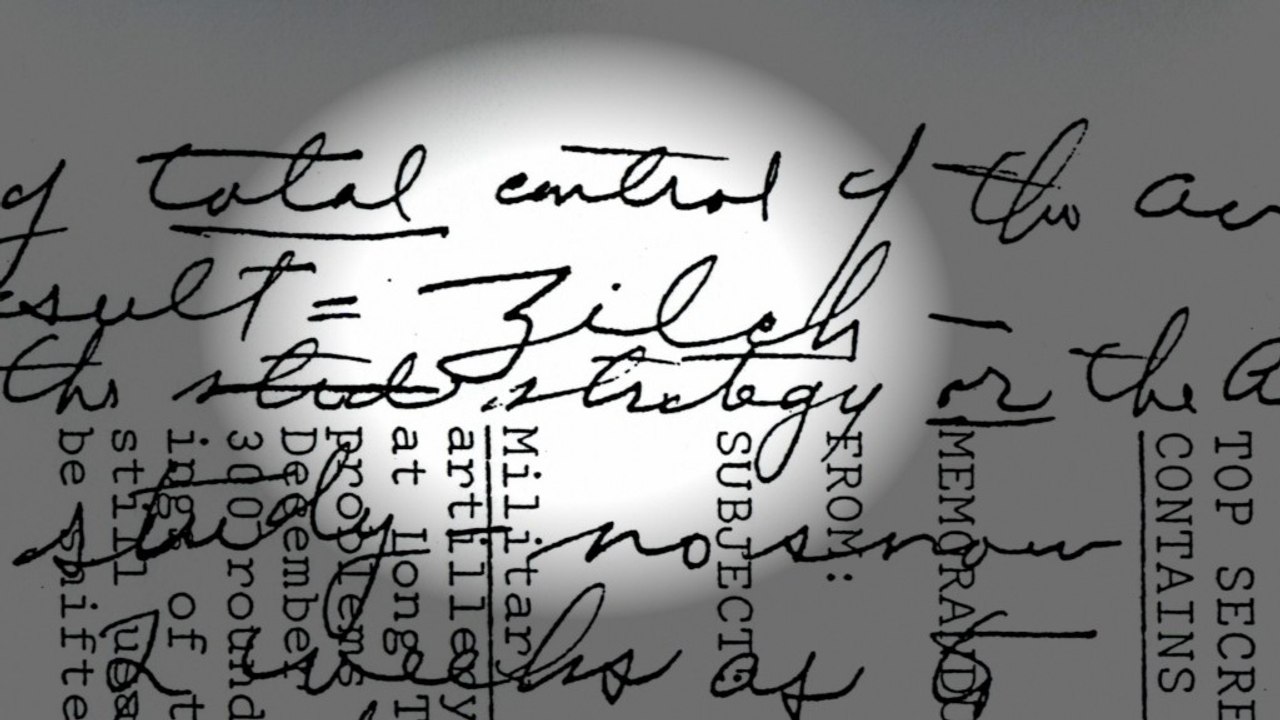 of total control of the
result = Zilch —
the stud strategy or the
study no snow
2 weeks of
TOP SECRE
CONTAINS
MEMORAND
FROM:
SUBJECT
Militar
artillery
at Long T
problems
December
300 round
ings of t
still
be shifte